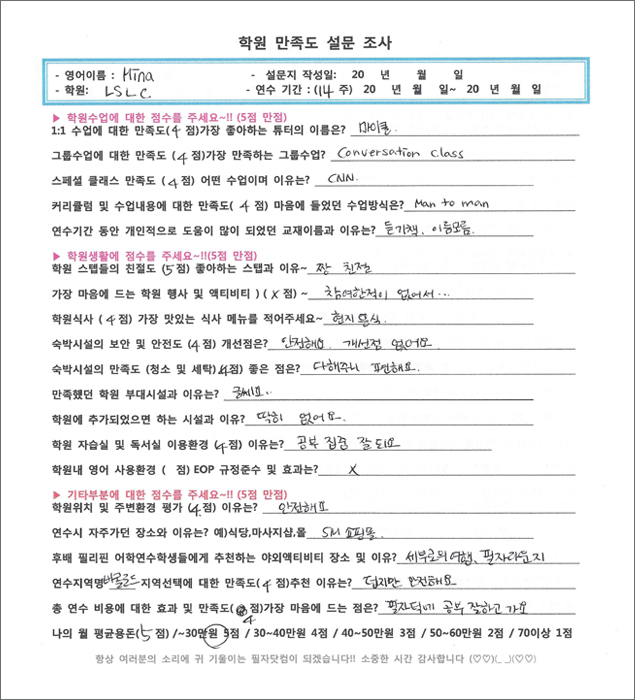 학원 만족도 설문 조사
- 영어이름 : Mina - 설문지 작성일: 20 년 월 일
- 학원: LSLC - 연수 기간 : (14 주) 20 년 월 일~ 20 년 월 일
▶ 학원수업에 대한 점수를 주세요~!! (5점 만점)
1:1 수업에 대한 만족도(4 점)가장 좋아하는 튜터의 이름은? 마이클
그룹수업에 대한 만족도 (4 점)가장 만족하는 그룹수업? Conversation class
스페셜 클래스 만족도 (4 점) 어떤 수업이며 이유는? CNN.
커리큘럼 및 수업내용에 대한 만족도( 4 점) 마음에 들었던 수업방식은? Man to man
연수기간 동안 개인적으로 도움이 많이 되었던 교재이름과 이유는? 듣기책, 이름모름.
▶ 학원생활에 점수를 주세요~!!(5점 만점)
학원 스텝들의 친절도 (5 점) 좋아하는 스탭과 이유~ 짱 친절
가장 마음에 드는 학원 행사 및 액티비티 ) ( x 점) ~ 참여한적이 없어서...
학원식사 ( 4 점) 가장 맛있는 식사 메뉴를 적어주세요~ 현지음식.
숙박시설의 보안 및 안전도 (4 점) 개선점은? 안전해요. 개선점 없어요
숙박시설의 만족도 (청소 및 세탁)(4점) 좋은 점은? 다해주니 편해요.
만족했던 학원 부대시설과 이유는? 글쎄요..
학원에 추가되었으면 하는 시설과 이유? 딱히 없어요.
학원 자습실 및 독서실 이용환경 (4 점) 이유는? 공부 집중 잘 되요
학원내 영어 사용환경 ( 점) EOP 규정준수 및 효과는? x
▶ 기타부분에 대한 점수를 주세요~!! (5점 만점)
학원위치 및 주변환경 평가 (4 점) 이유는? 안전해요
연수시 자주가던 장소와 이유는? 예)식당,마사지샵,몰 SM 쇼핑몰
후배 필리핀 어학연수학생들에게 추천하는 야외액티비티 장소 및 이유? 세부로의여행, 필자라운지
연수지역명 바콜로드 지역선택에 대한 만족도(4 점)추천 이유는? 덥지만 안전해요
총 연수 비용에 대한 효과 및 만족도( 4 점)가장 마음에 드는 점은? 필자덕에 공부 잘하고 가요
나의 월 평균용돈(5 점) /~30만원 5점 / 30~40만원 4점 / 40~50만원 3점 / 50~60만원 2점 / 70이상 1점
항상 여러분의 소리에 귀 기울이는 필자닷컴이 되겠습니다!! 소중한 시간 감사합니다 (♡♡)(_ _)(♡♡)